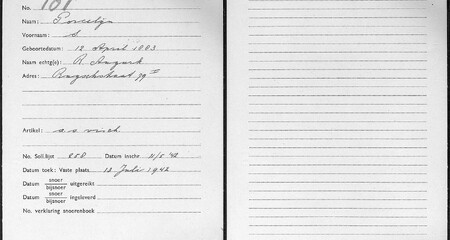 No. 181
Naam: Porcelijn
Voornaam: S
Geboortedatum: 12 April 1903
Naam echtg(e): R
Adres:
Artikel:
No. Soll.lijst 258 Datum inschr 21/5 '42
Datum toek: Vaste plaats 12 Juli 1942
Datum snoer / bijsnoer uitgereikt
Datum snoer / bijsnoer ingeleverd
No. verklaring snoerenboek